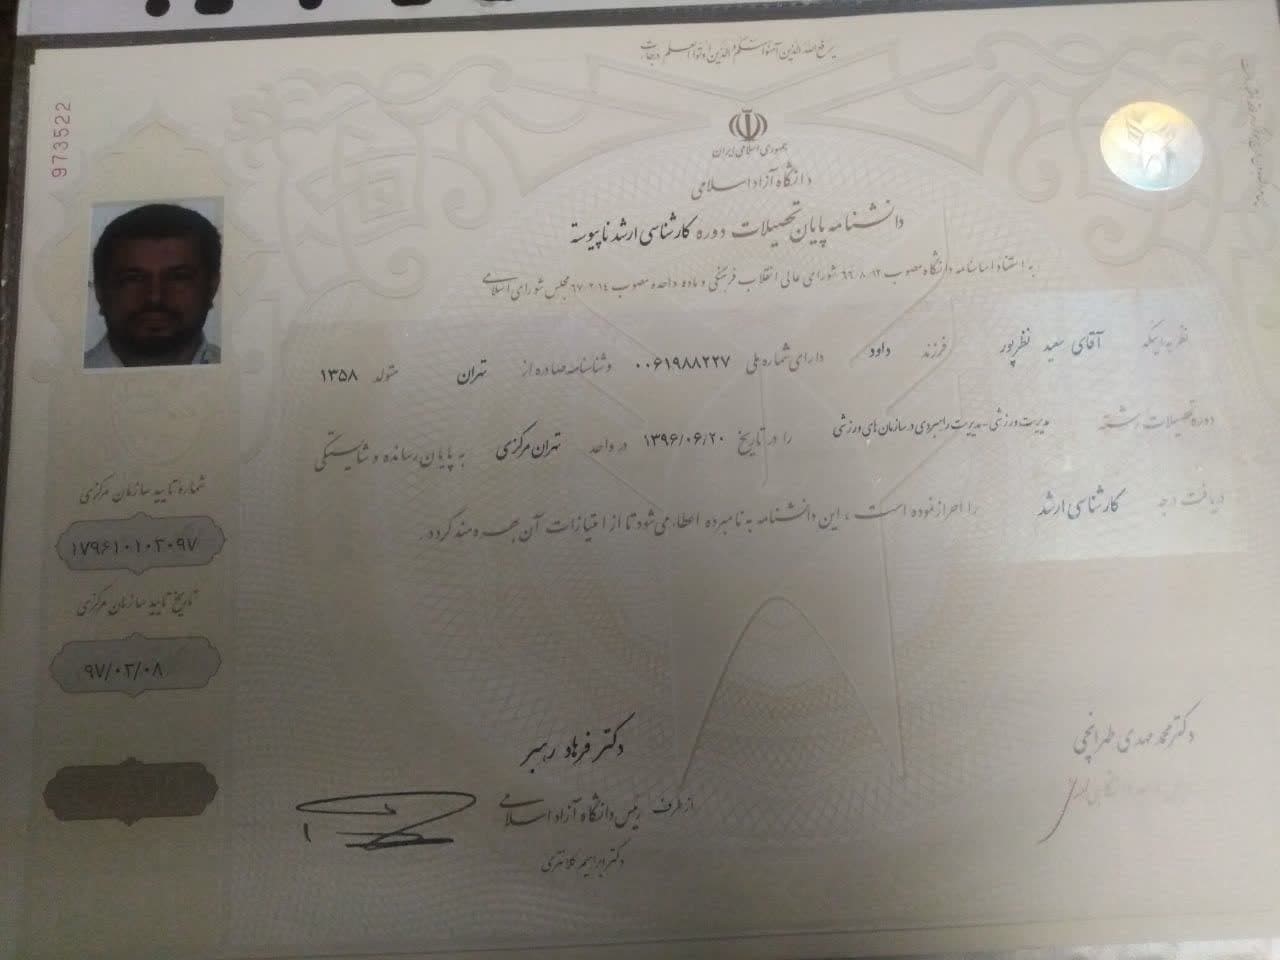 یرفع الله الذین آمنوا منکم والذین اوتوا العلم درجات
جمهوری اسلامی ایران
دانشگاه آزاد اسلامی
دانشنامه پایان تحصیلات دوره کارشناسی ارشد ناپیوسته
به استناد اساسنامه دانشگاه مصوب ۶۶/۸/۱۲ شورای عالی انقلاب فرهنگی و ماده واحده مصوب ۶۷/۲/۱۴ مجلس شورای اسلامی
نظر به اینکه آقای سعید نظرپور فرزند داود دارای شماره ملی ۰۰۶۱۹۸۸۲۲۷ و شناسنامه صادره از تهران متولد ۱۳۵۸
دوره تحصیلات رشته مدیریت ورزشی-مدیریت راهبردی در سازمان های ورزشی را در تاریخ ۱۳۹۶/۰۶/۲۰ در واحد تهران مرکزی به پایان رسانده و شایستگی
دریافت درجه کارشناسی ارشد را احراز نموده است، این دانشنامه به نامبرده اعطاء می شود تا از امتیازات آن بهره مند گردد.
973522
شماره تایید سازمان مرکزی
۱۷۹۶۱۰۱۰۲۰۹۷
تاریخ تایید سازمان مرکزی
۹۷/۰۲/۰۸
دکتر محمد مهدی طهرانچی
دکتر فرهاد رهبر
از طرف رئیس دانشگاه آزاد اسلامی
دکتر ابراهیم کلانتری